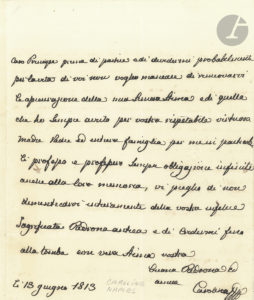 Caro Principe prima di partire e di vendermi probabilmente
per la vita di voi non voglio mancare di rinnovarvi
l'espressione della mia sincera stima e di quella
che ho sempre avuto per vostra rispettabile virtuosa
madre Padre ed intiera famiglia per me mi particolare
E professo e professerò sempre obligazione infinite
anche alla loro memoria, vi prego di non
dimenticarvi intieramente della vostra infelice
Padrona antica e di credermi fino
alla tomba con vera stima vostra
buona Padrona ed
amica
Carolina
Li 13 giugno 1813
CAROLINE
NAPLES
a